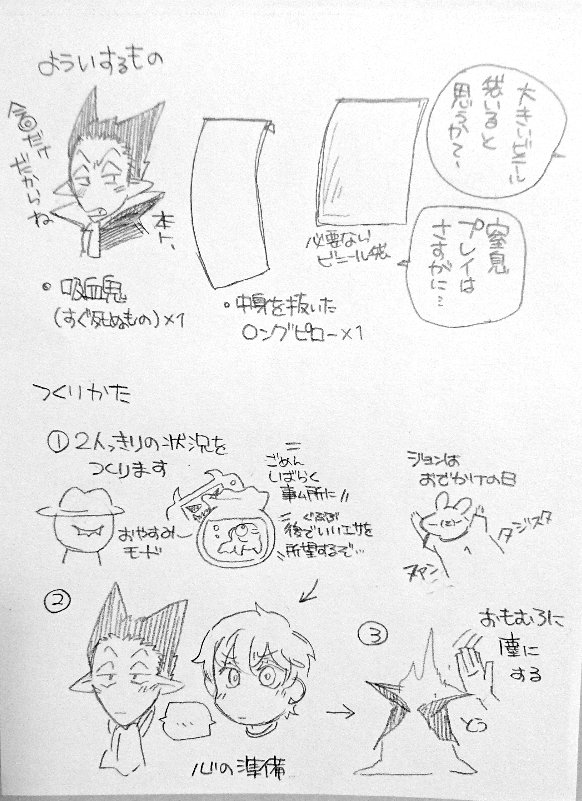 よういするもの
今回だけ
だからね
本ト、
大きいビニール
袋いると
思うかて、
窒息
プレイは
さすがに…
必要ない
ビニール袋
・吸血鬼
(すぐ死ぬもの)×1
・中身を抜いた
ロングピロー×1
つくりかた
①2人っきりの状況を
つくります
おやすみ〜
モード
ごめん
しばらく
事ム所に!!
ぐるぶる
後でいいエサを
所望するで…
ジョンは
おでかけの日
ヌァン
タジスタ
②
…
心の準備
③
おもむろに
塵に
する
とう